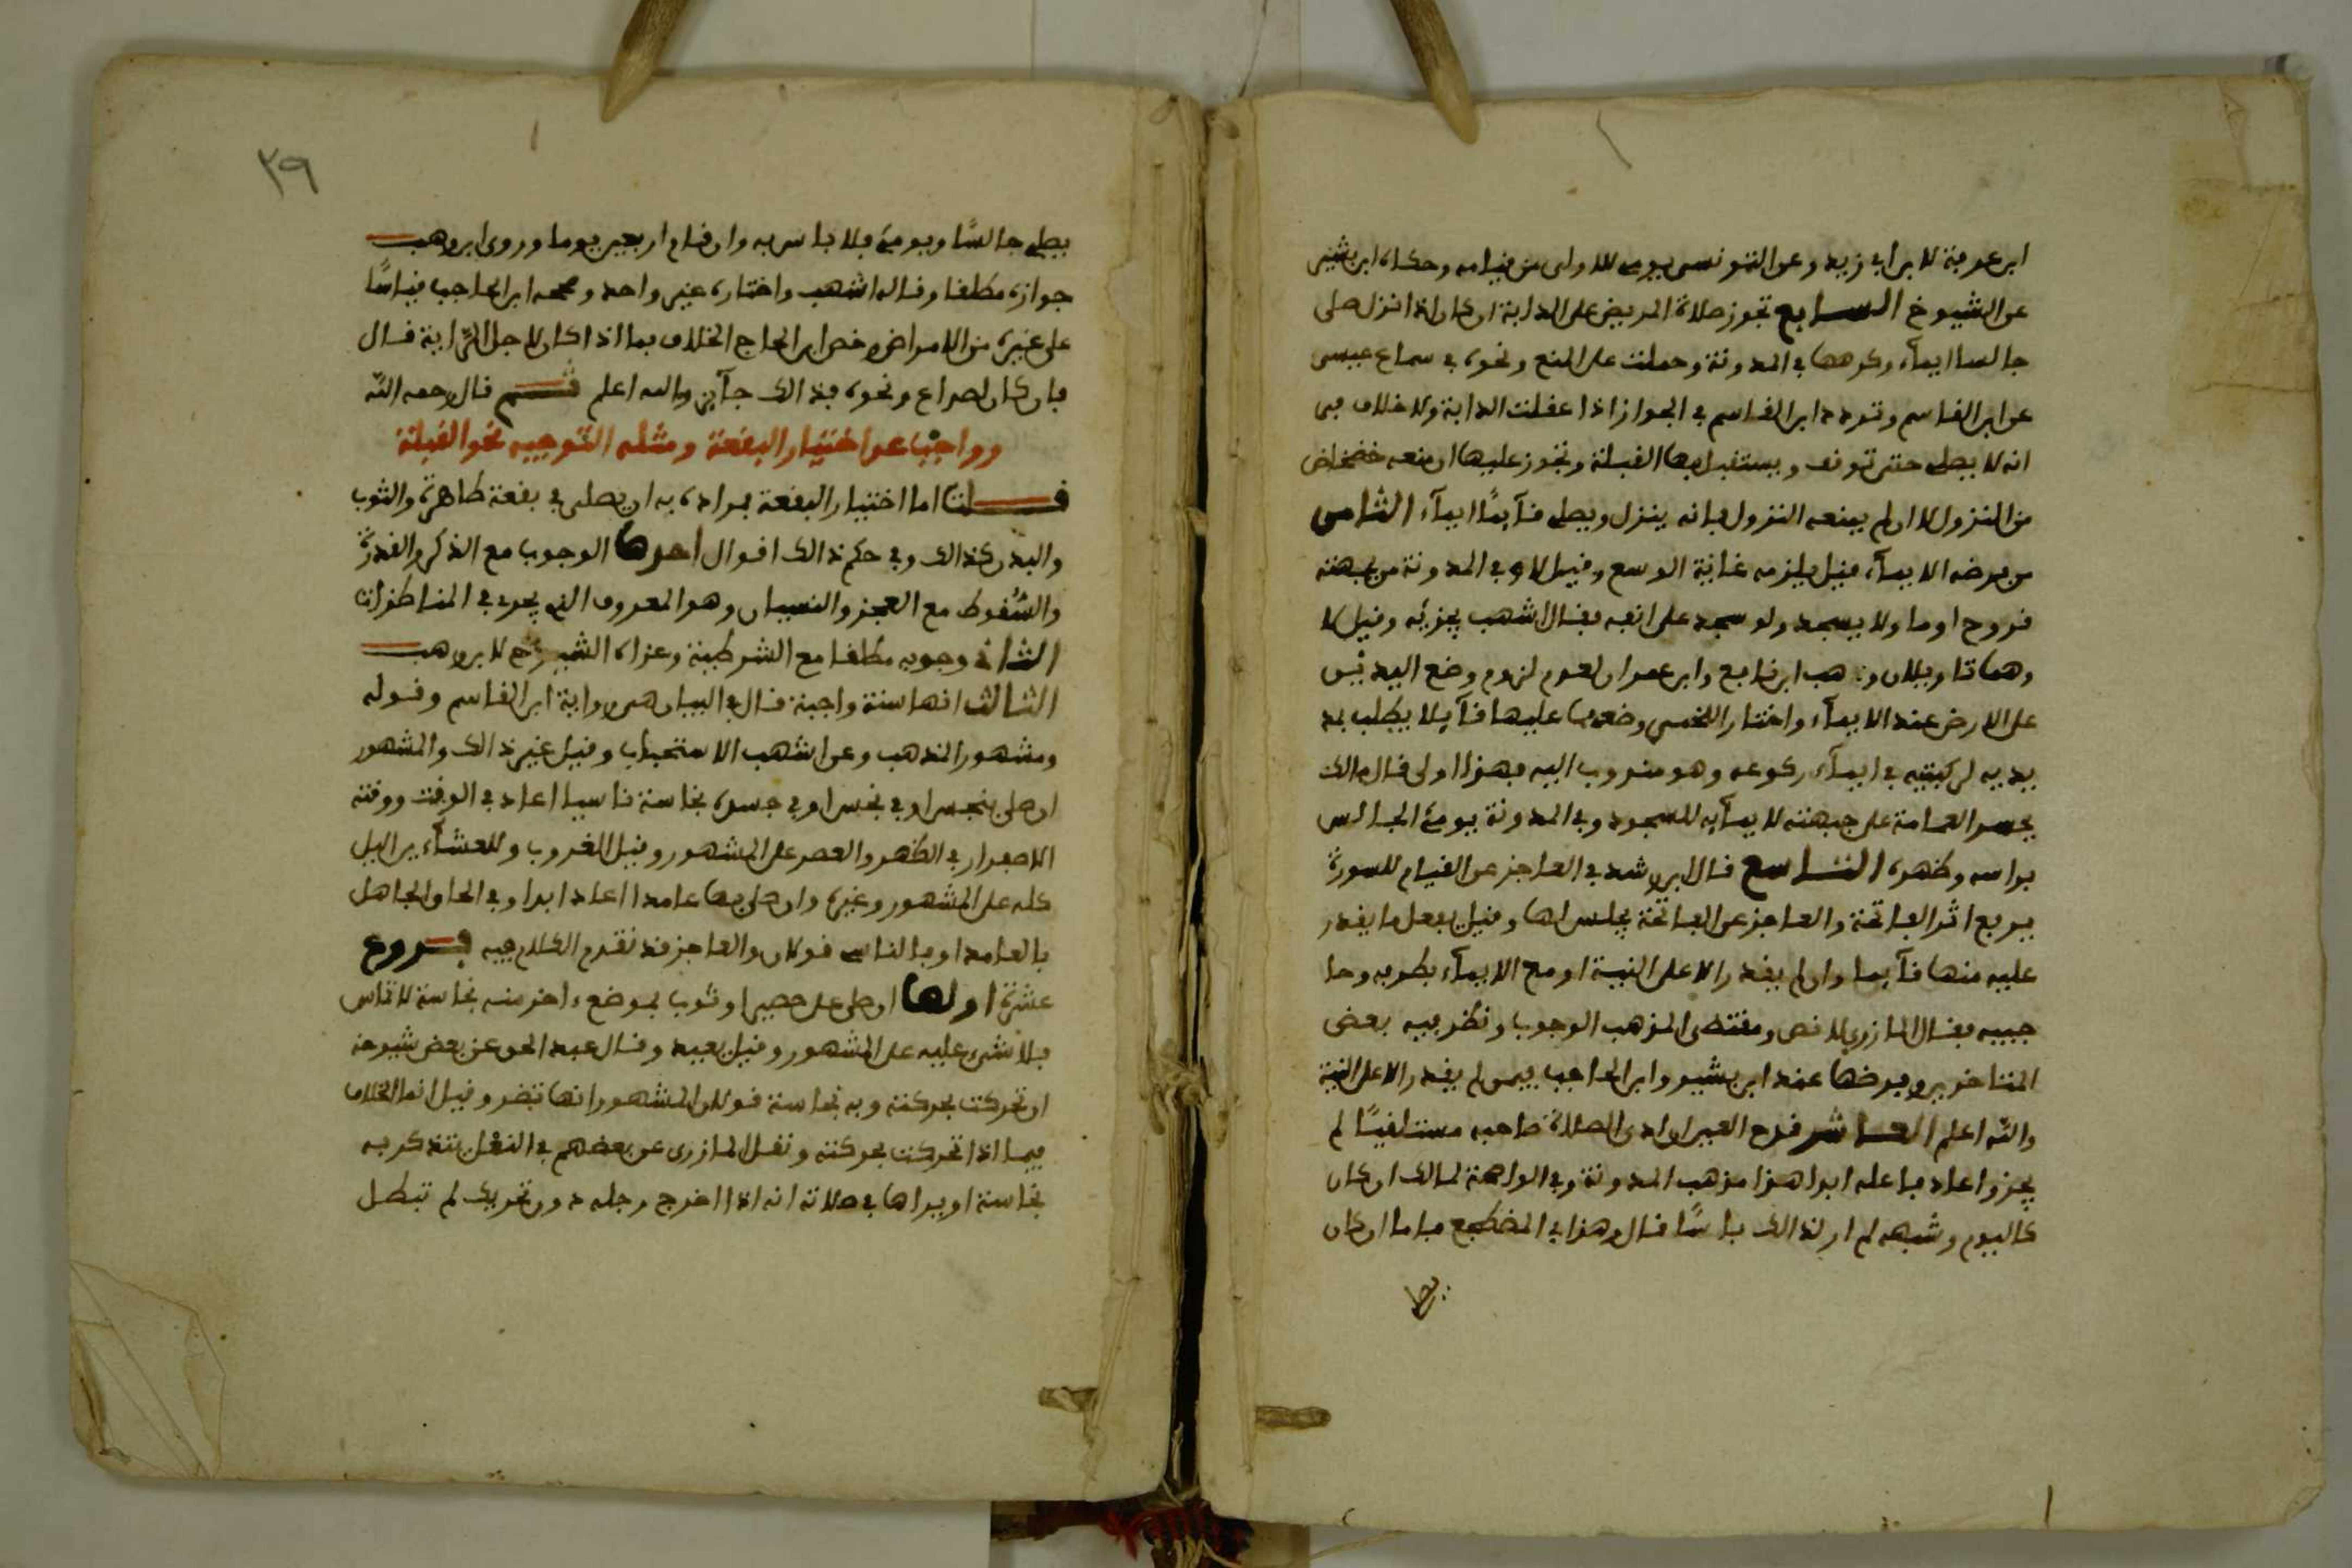 ابن عرفة لابن ابي زيد وعن التونسي يومي للاولى من قيامه وحكاه ابن بشير
عن الشيوخ السابع تجوز صلاة المريض على الدابة ان كان اذا نزل صلى
جالسا ايماء وكرهها في المدونة وحملت على المنع ونحوه في سماع عيسى
عن ابن القاسم وتردد ابن القاسم في الجواز اذا عقلت الدابة ولا خلاف في
انه لا يصلي حتى توقف ويستقبل بها القبلة وتجوز عليها ان منعه خضخاض
من النزول الا ان لم يمنعه النزول فانه ينزل ويصلي قآئما ايمآء الثامن
من فرضه الايمآء فقيل يلزمه غاية الوسع وقيل لا وفي المدونة من بجبهته
قروح اوما ولا يسجد ولو سجد على انفه فقال اشهب يجزئه وقيل لا
وهما تاويلان وذهب ابن نافع وابو عمران لعدم لزوم وضع اليدين
على الارض عند الايمآء واختار اللخمي وضعهما عليها قآئلا يطلب مد
يديه لركبتيه في ايمآء ركوعه وهو مندوب اليه فهذا اولى قال مالك
يحسر العمامة على جبهته لايمآئه للسجود وفي المدونة يومئ الجالس
براسه وظهره التاسع قال ابن رشد في العاجز عن القيام للسورة
يركع اثر الفاتحة والعاجز عن الفاتحة يجلس لها وقيل يفعل ما يقدر
عليه منها قآئما وان لم يقدر الا على النية او مع الايمآء بطرفه وحا
جبيه فقال المازري لا نص ومقتضى المذهب الوجوب ونظر فيه بعض
المتاخرين وفرضها عند ابن بشير وابن الحاجب فيمن لم يقدر الا على النية
والله اعلم العاشر قدح العين ان ادى الصلاة صاحبه مستلقيا لم
يجز واعاد فاعله ابدا هذا مذهب المدونة وفي الواضحة لمالك ان كان
كاليوم وشبهه لم ار لذالك باسًا قال وهذا في المضطجع فاما ان كان
يصلي
٣٩
يصلي جالسًا ويومئ فلا باس به وان قام اربعين يوما وروى ابن وهب
جوازه مطلقا وقاله اشهب واختاره غير واحد وصححه ابن الحاجب قياسًا
على غيره من الامراض وخص ابن الحاج الخلاف بما اذا كان لاجل القراية قال
فان كان لصداع ونحوه فذالك جآئز والله اعلم ثم قال رحمه الله
وواجب عن اختيار البقعة ومثله التوجيه نحو القبلة
قلت اما اختيار البقعة فمراده به ان يصلى في بقعة طاهرة والثوب
والبدن كذالك وفي حكم ذالك اقوال احدها الوجوب مع الذكر والقدرة
والسُّقوط مع العجز والنسيان وهو المعروف الذي يجري في المناظرات
الثاني وجوبه مطلقا مع الشرطية وعزاه الشيوخ لابن وهب
الثالث انها سنة واجبة قال في البيان هي رواية ابن القاسم وقوله
ومشهور المذهب وعن اشهب الاستحباب وقيل غير ذالك والمشهور
ان صلى بنجس او في نجس او في جسده نجاسة ناسيا اعاد في الوقت ووقته
الاصفرار في الظهر والعصر على المشهور وقيل الغروب وللعشآءين اليل
كله على المشهور وغيره وان صلى بها عامدا اعاد ابدا وفي الحاق الجاهل
بالعامد او بالناسي قولان والعاجز قد تقدم الكلام فيه فروع
عشرة اولها ان صلى على حصير او ثوب بموضع ءاخر منه نجاسة لا تماس
فلا شيء عليه على المشهور وقيل يعيد وقال عبد الحق عن بعض شيوخه
ان تحركت بحركته وبه نجاسة قولان المشهور انها تضر وقيل انما الخلاف
فيما اذا تحركت بحركته ونقل المازري عن بعضهم في النعْل يتذكر به
نجاسة او يراها في صلاته انه اذا اخرج رجله دون تحريك لم تبطل